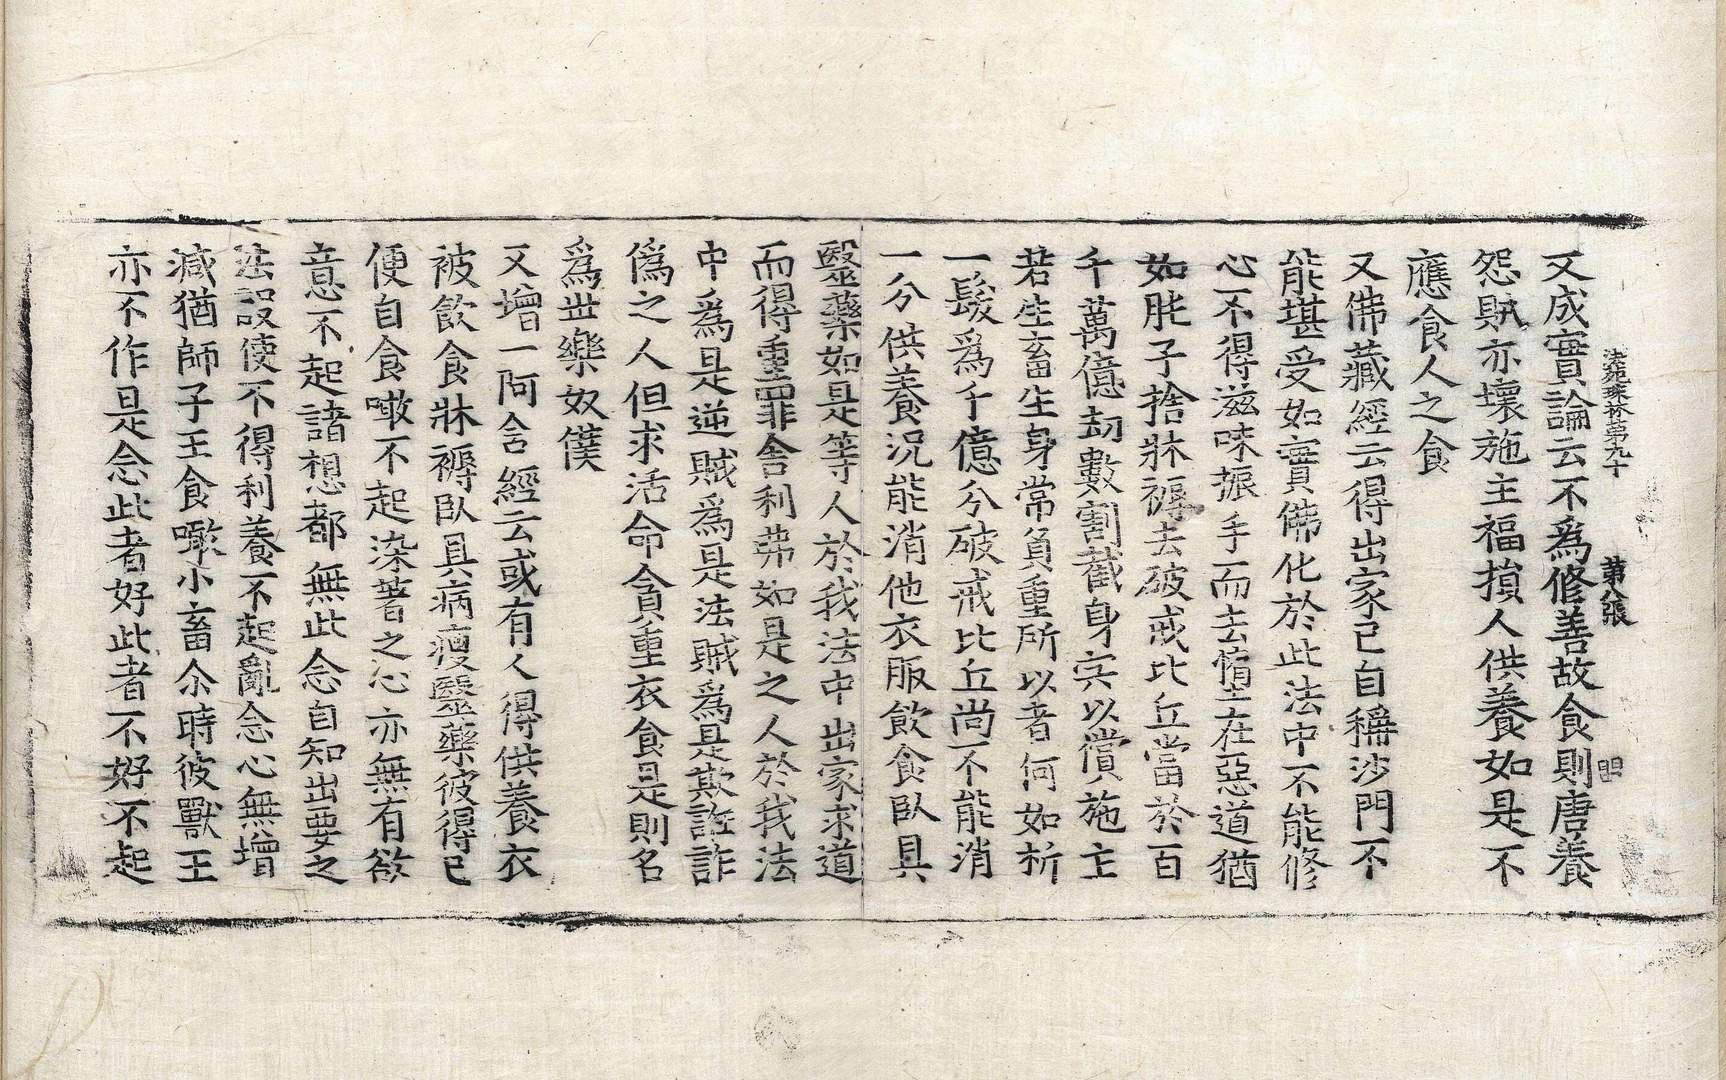 法苑珠林第九十 第八張
又成實論云不爲修善故食則唐養
怨賊亦壞施主福損人供養如是不
應食人之食
又佛藏經云得出家已自稱沙門不
能堪受如實佛化於此法中不能修
心不得滋味振手而去墮在惡道猶
如肶子捨牀褥去破戒比丘當於百
千萬億劫數割截身宍以償施主
若生畜生身常負重所以者何如析
一髮爲千億分破戒比丘尚不能消
一分供養況能消他衣服飲食臥具
毉藥如是等人於我法中出家求道
而得重罪舍利弗如是之人於我法
中爲是逆賊爲是法賊爲是欺誑詐
僞之人但求活命貪重衣食是則名
爲世樂奴僕
又增一阿含經云或有人得供養衣
被飲食牀褥臥具病瘦毉藥彼得已
便自食噉不起染著之心亦無有欲
意不起諸想都無此念自知出要之
法設使不得利養不起亂念心無增
減猶師子王食噉小畜尒時彼獸王
亦不作是念此者好此者不好不起